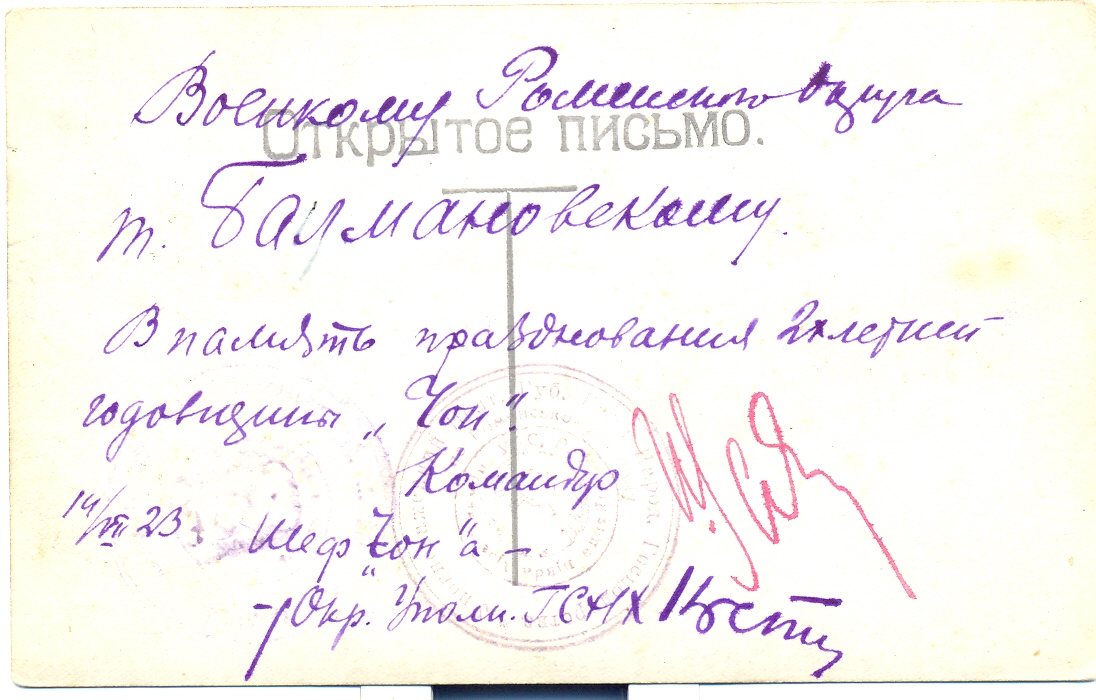 Военкому Роменского Округа
Открытое письмо.
т. Балмановскому.
В память празднования 2х летней
годовщины „Чон“.
Командир
14/VIII 23. Шеф „Чон“а –
Окр. Уполн. ГСНХ